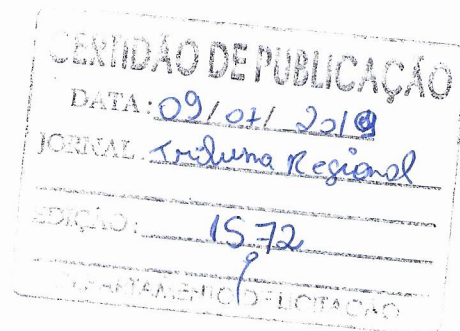 CERTIDÃO DE PUBLICAÇÃO
DATA: 09/07/2019
JORNAL: Tribuna Regional
EDIÇÃO: 1572
DEPARTAMENTO DE LICITAÇÃO